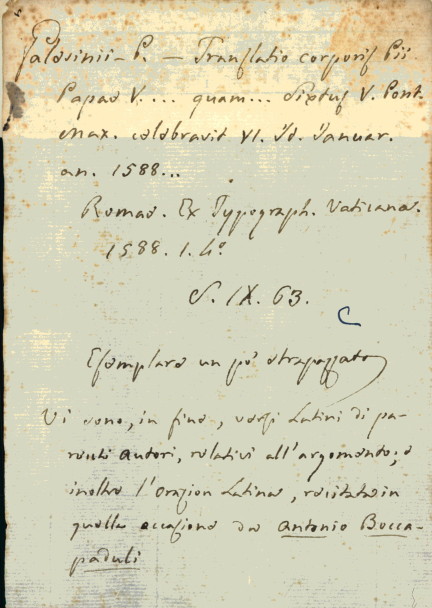 Galesinii P. — Translatio corporis Pii
Papae V. ... quam... Sixtus V. Pont.
Max. celebravit VI. Id. Januar.
an. 1588...
Romae. Ex Typograph. Vaticana.
1588. 1. 4º
S. IX. 63.
C
Esemplare un pò strapazzato
Vi sono, in fine, versi Latini di pa-
recchi autori, relativi all'argomento; e
inoltre l'Orazion Latina, recitata in
quella occasione da Antonio Bocca-
paduli